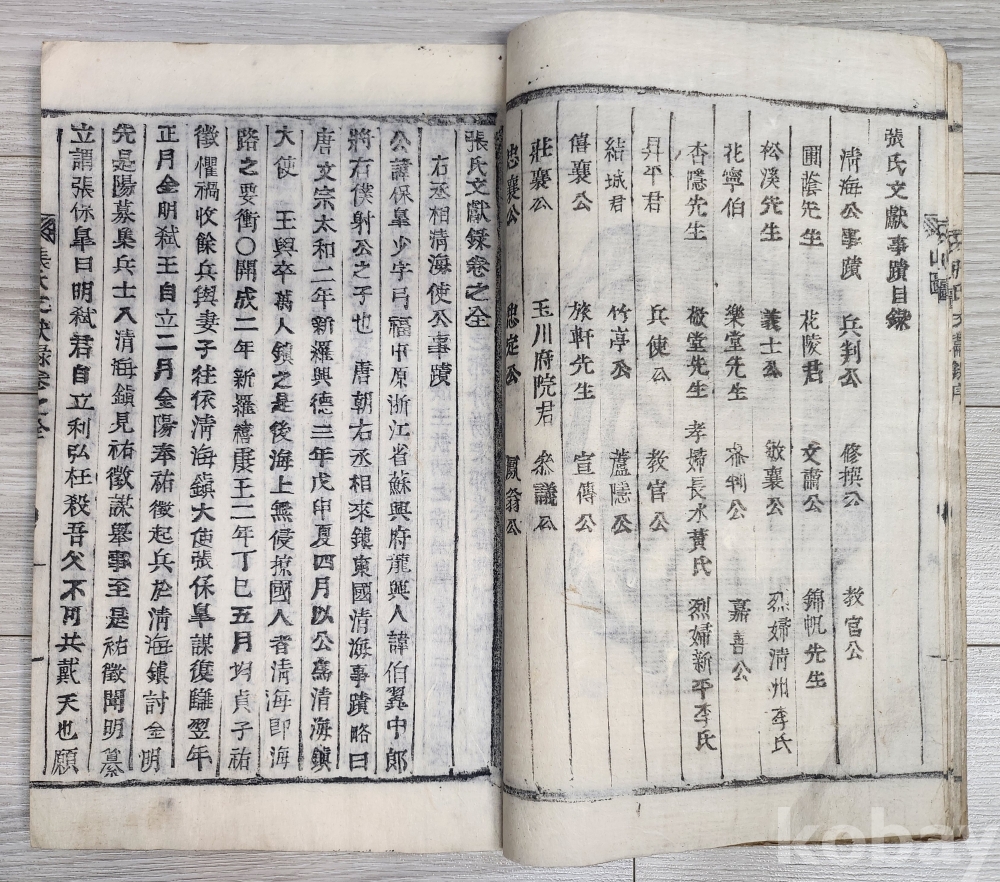 張氏文獻事蹟目錄
淸海公事蹟 兵判公 修撰公 敎官公
圃蔭先生 花陵君 文肅公 錦帆先生
松溪先生 義士公 敬襄公 烈婦淸州李氏
花寧伯 樂堂先生 參判公 嘉善公
杏隱先生 敬堂先生 孝婦長水黃氏 烈婦新平李氏
昇平君 兵使公 敎官公
結城君 竹亭公 蘆隱公
僖襄公 旅軒先生 宣傳公
莊襄公 玉川府院君 參議公
忠襄公 忠定公 翁公
張氏文獻錄卷之全
右丞相淸海使公事蹟
公諱保皐少字弓福中原浙江省蘇興府龍興人諱伯翼中郞
將右僕射公之子也 唐朝右丞相來鎭東國淸海事蹟略曰
唐文宗太和二年新羅興德三年戊申夏四月以公爲淸海鎭
大使 王與卒萬人鎭之是後海上無侵掠國人者淸海卽海
路之要衝〇開成二年新羅禧康王二年丁巳五月均貞子祐
徵懼禍收餘兵與妻子往依淸海鎭大使張保皐謀復讎翌年
正月金明弑王自立二月金陽奉祐徵起兵於淸海鎭討金明
先是陽募集兵士入淸海鎭見祐徵謀擧事至是祐徵聞明簒
立謂張保皐曰明弑君自立利弘枉殺吾父不可共戴天也願
張氏文獻錄卷之全 一
kobay